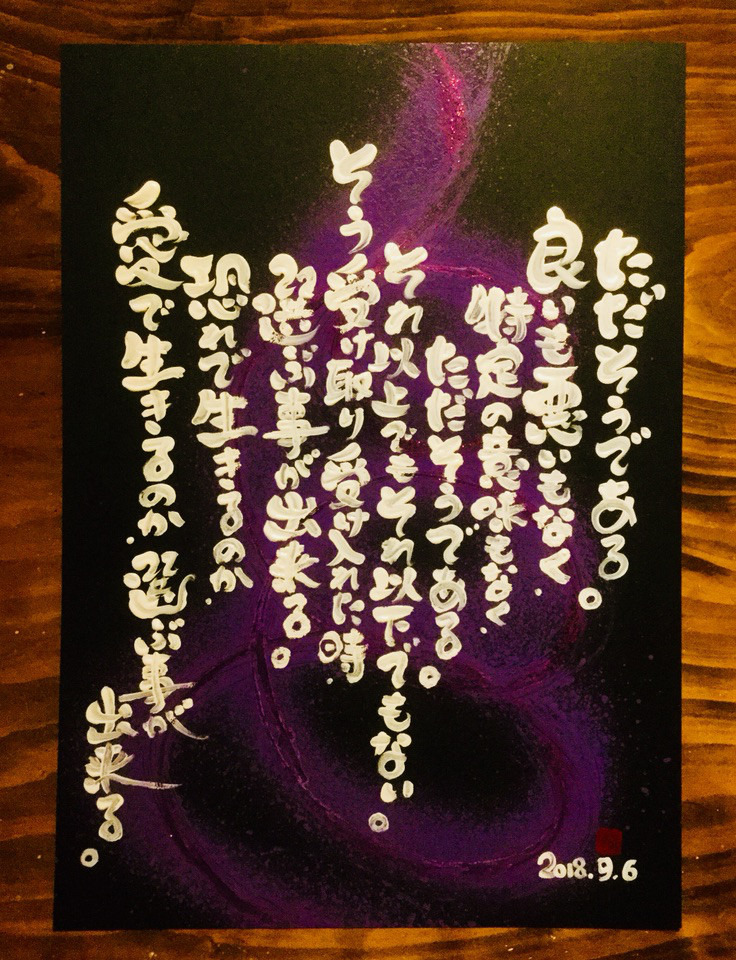 ただそうである。
良いも悪いもなく、
特定の意味もなく、
ただそうである。
それ以上でもそれ以下でもない。
そう受け取り受け入れた時、
選ぶ事が出来る。
恐れで生きるのか、
愛で生きるのか、選ぶ事が
出来る。
2018.9.6